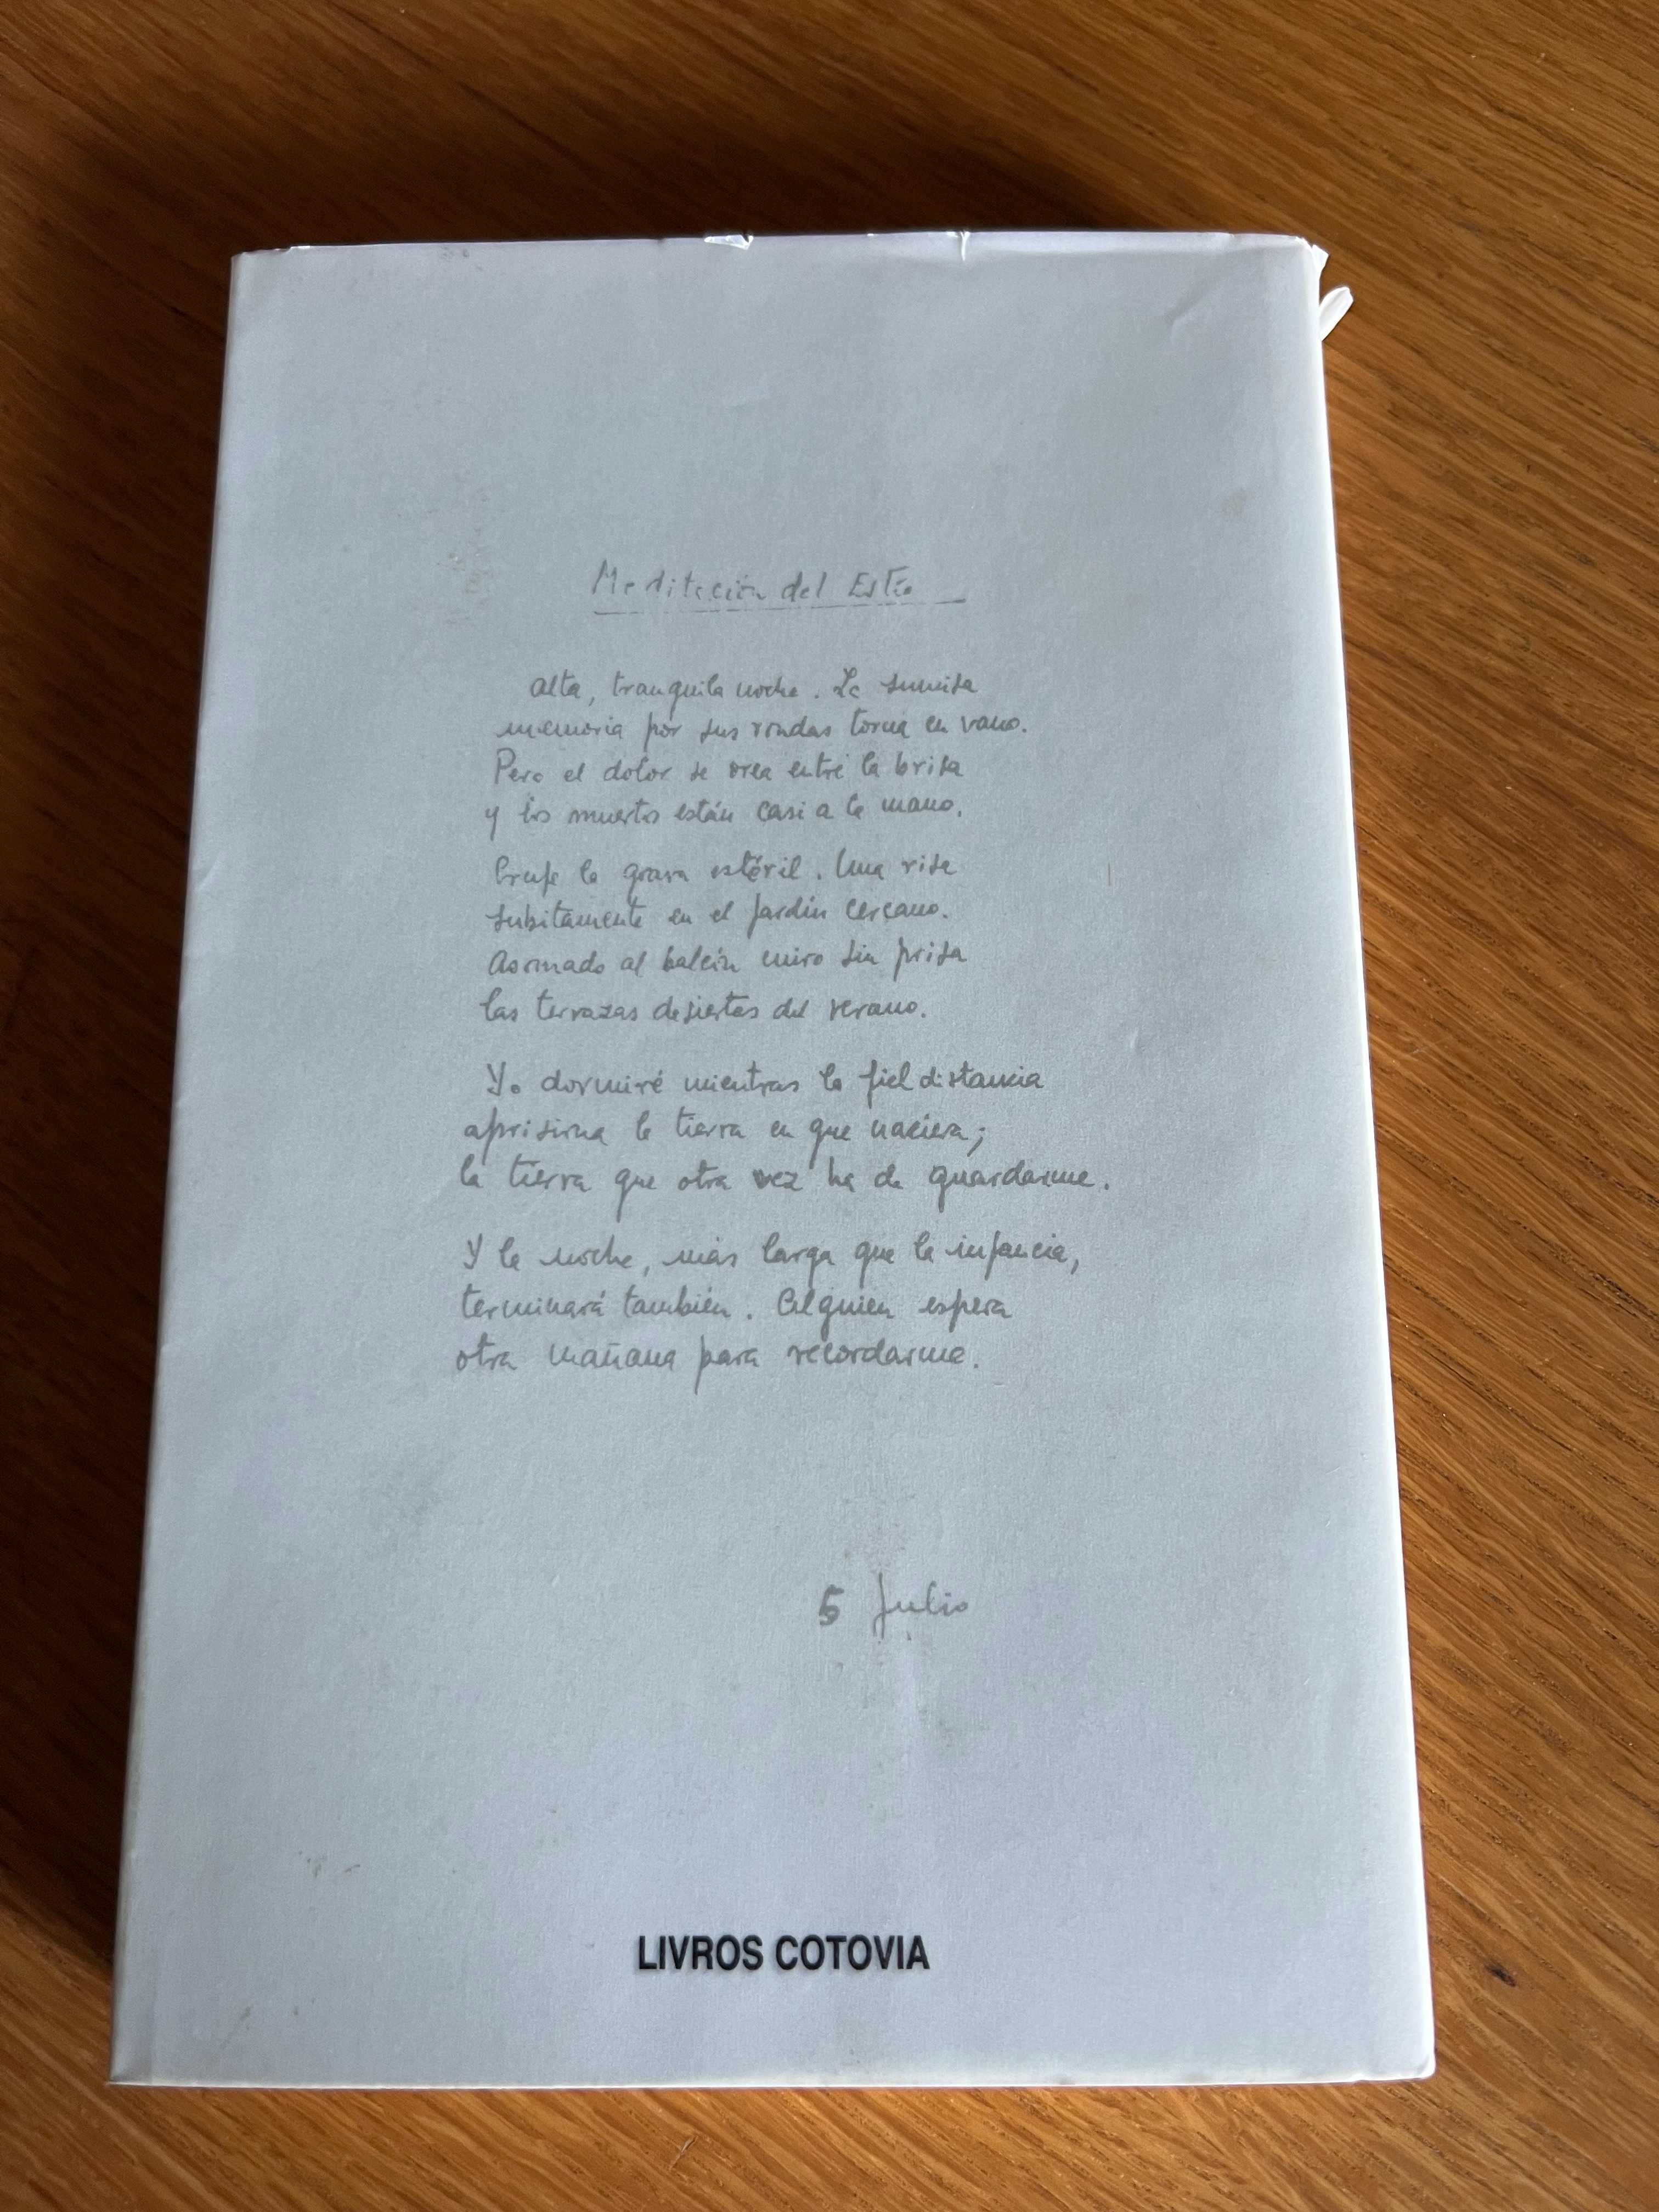 Meditación del Estío
Alta, tranquila noche. La sumisa
memoria por sus rondas torna en vano.
Pero el dolor se orea entre la brisa
y los muertos están casi a la mano.
Cruje la grava estéril. Una risa
subitamente en el jardín cercano.
Asomado al balcón miro sin prisa
las terrazas desiertas del verano.
Yo dormiré mientras la fiel distancia
aprisiona la tierra en que naciera;
la tierra que otra vez ha de guardarme.
Y la noche, más larga que la infancia,
terminará también. Alguien espera
otra mañana para recordarme.
5 Julio
LIVROS COTOVIA